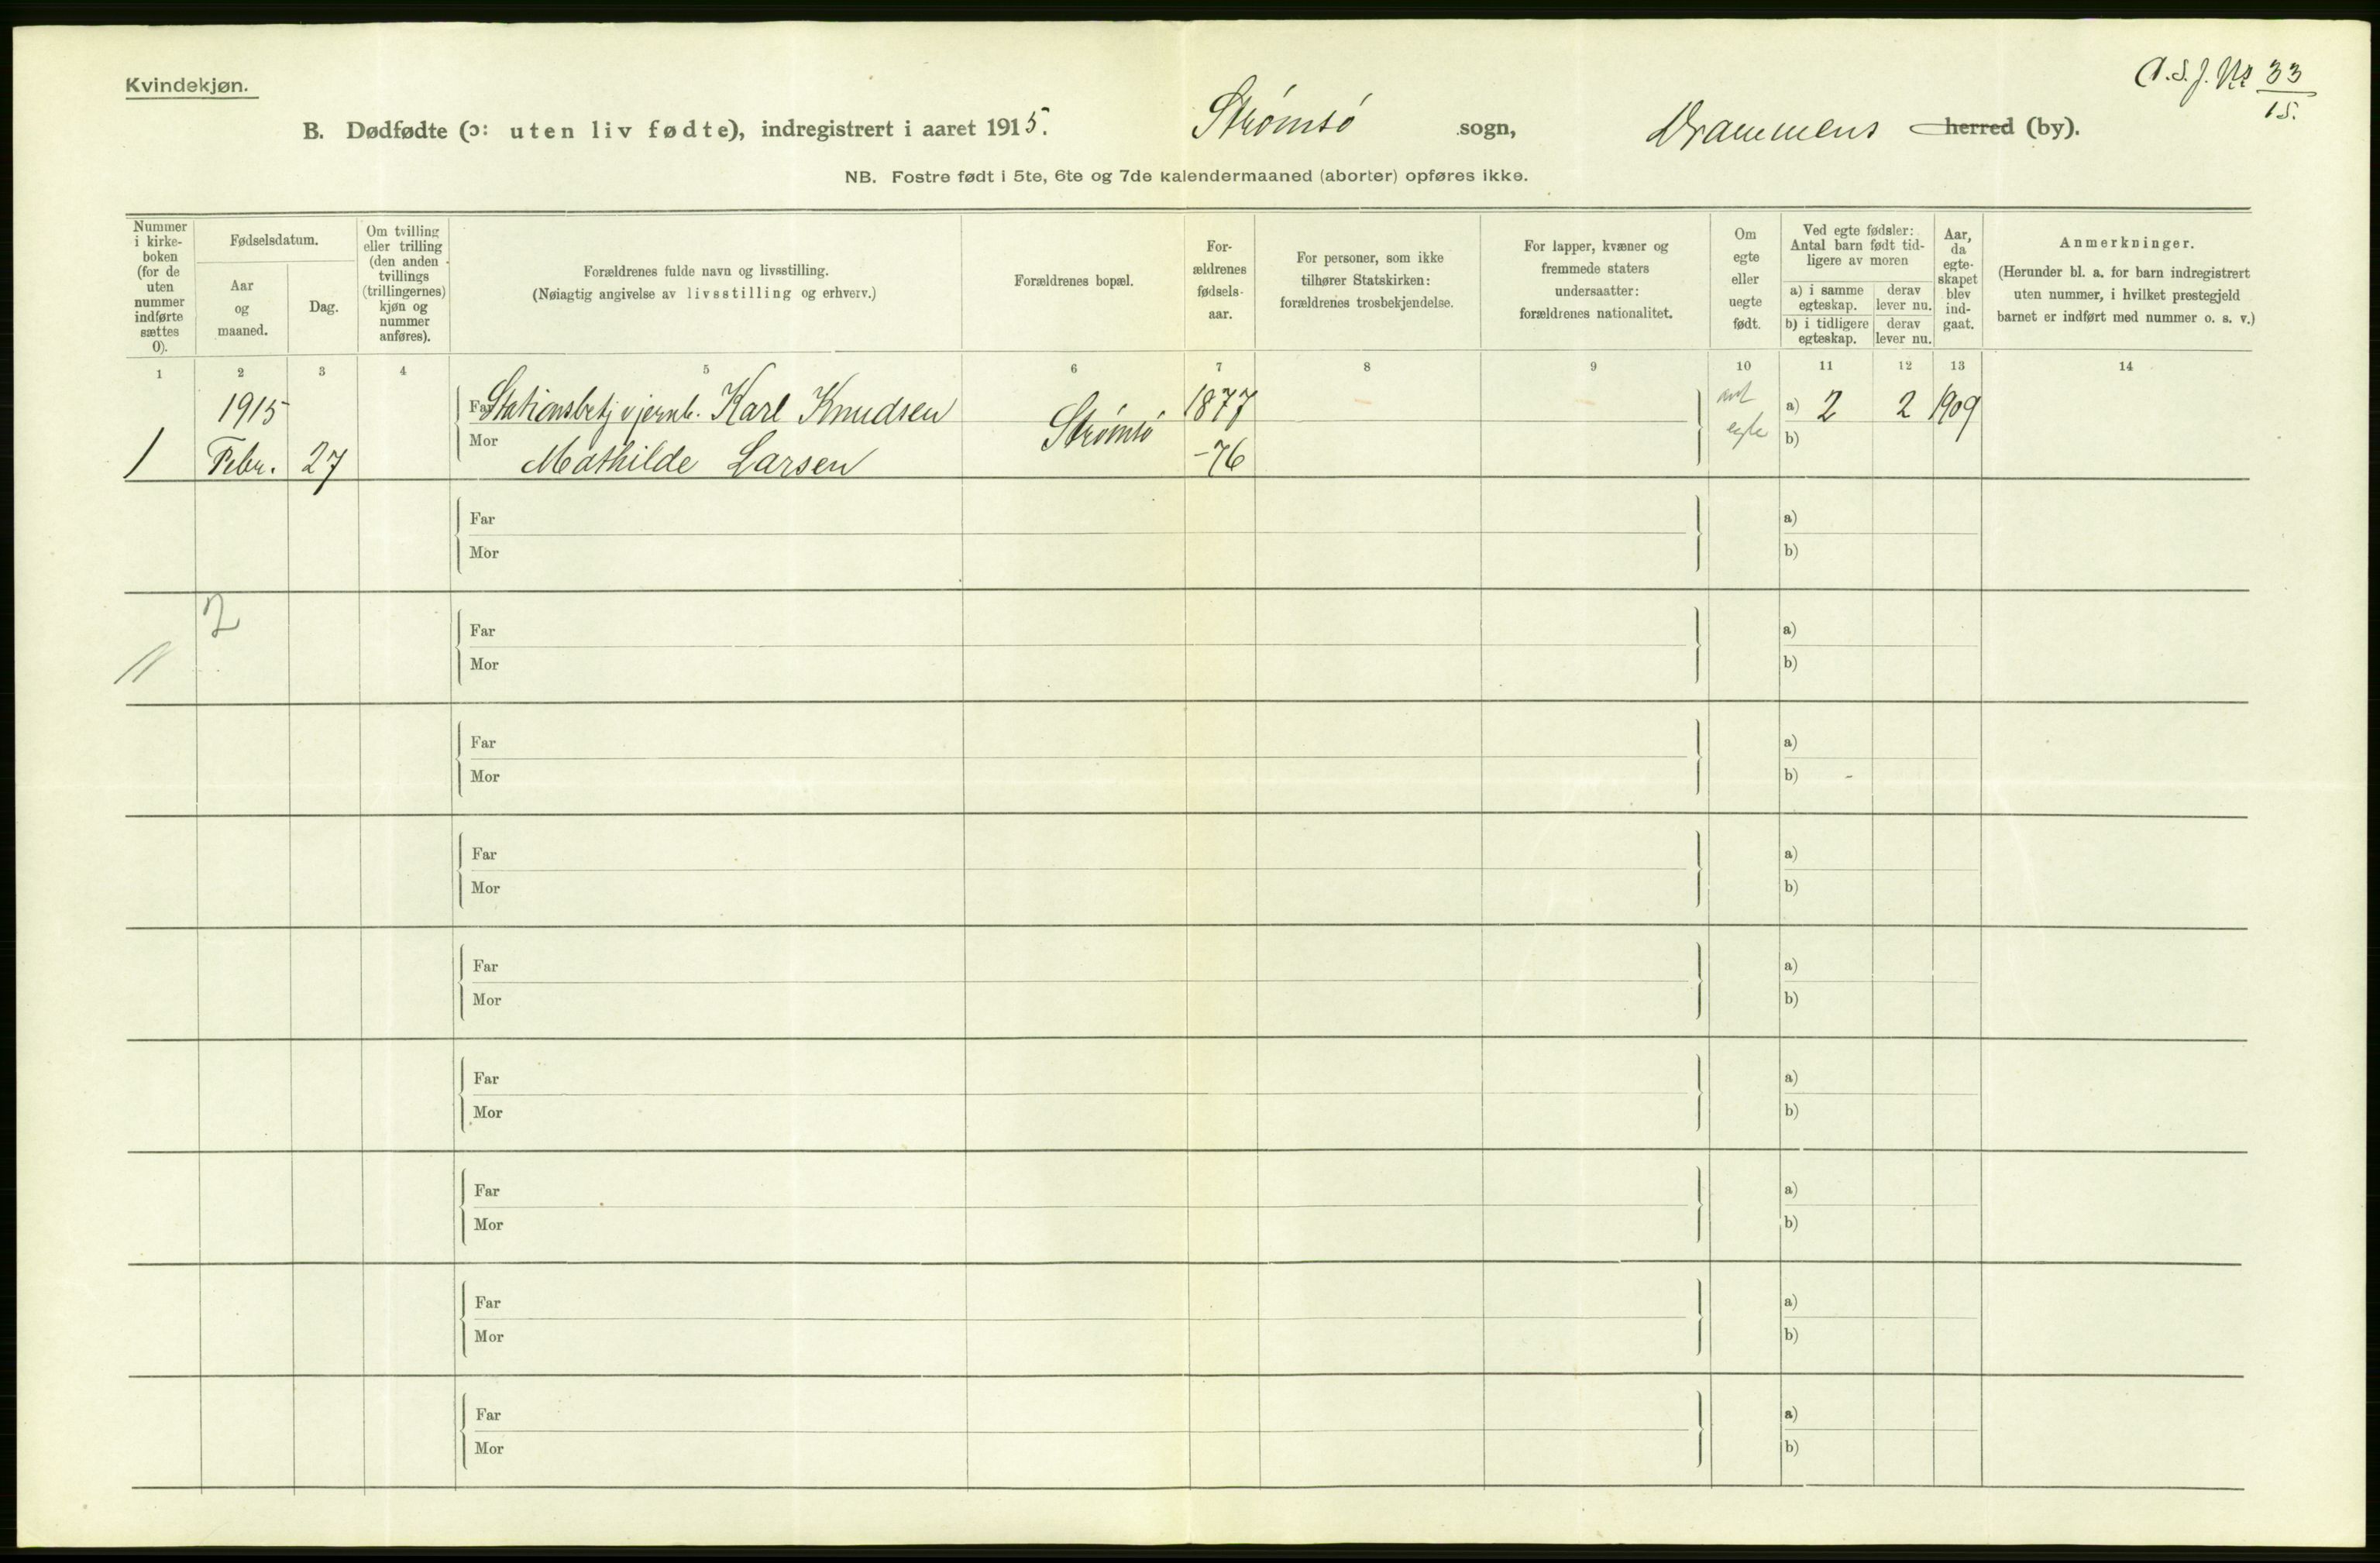 Kvindekjøn.
A.S.J. № 33/15.
B. Dødfødte (ɔ: uten liv fødte), indregistrert i aaret 1915. Strømsø sogn, Drammens herred (by).
NB. Fostre født i 5te, 6te og 7de kalendermaaned (aborter) opføres ikke.
Nummer i kirke-boken (for de uten nummer indførte sættes 0).
Fødselsdatum.
Aar og maaned.
Dag.
Om tvilling eller trilling (den anden tvillings (trillingernes) kjøn og nummer anføres).
Forældrenes fulde navn og livsstilling.
(Nøiagtig angivelse av livsstilling og erhverv.)
Forældrenes bopæl.
For-ældrenes fødsels-aar.
For personer, som ikke tilhører Statskirken: forældrenes trosbekjendelse.
For lapper, kvæner og fremmede staters undersaatter: forældrenes nationalitet.
Om egte eller uegte født.
Ved egte fødsler: Antal barn født tid-ligere av moren
a) i samme egteskap.
derav lever nu.
b) i tidligere egteskap.
derav lever nu.
Aar, da egte-skapet blev ind-gaat.
Anmerkninger.
(Herunder bl. a. for barn indregistrert uten nummer, i hvilket prestegjeld barnet er indført med nummer o. s. v.)
1 2 3 4 5 6 7 8 9 10 11 12 13 14
1915 Far Stationsbetj v jernb. Karl Knudsen Strømsø 1877 a) 2 2 1909
1 Febr. 27 Mor Mathilde Larsen -76 egte b)
Far a)
Mor b)
2
Far a)
Mor b)
Far a)
Mor b)
Far a)
Mor b)
Far a)
Mor b)
Far a)
Mor b)
Far a)
Mor b)
Far a)
Mor b)
Far a)
Mor b)